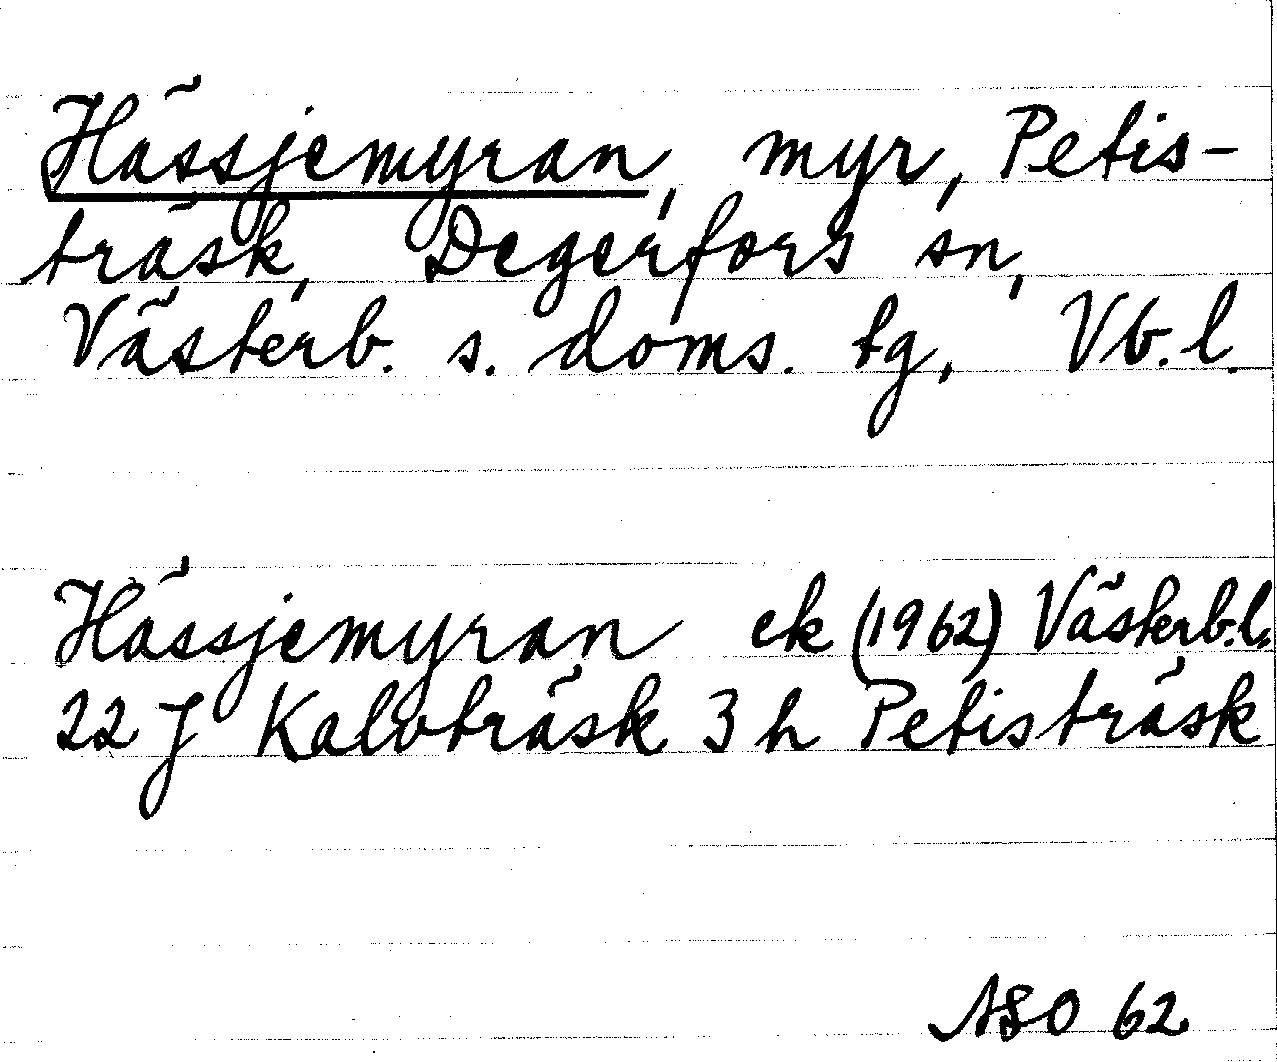 Hässjemyran, myr, Petis-
träsk, Degerfors sn,
Västerb. s. doms. tg, Vb. l.
Hässjemyran ek (1962) Västerb. l.
22 J Kalvträsk 3 h Petisträsk
ASO 62